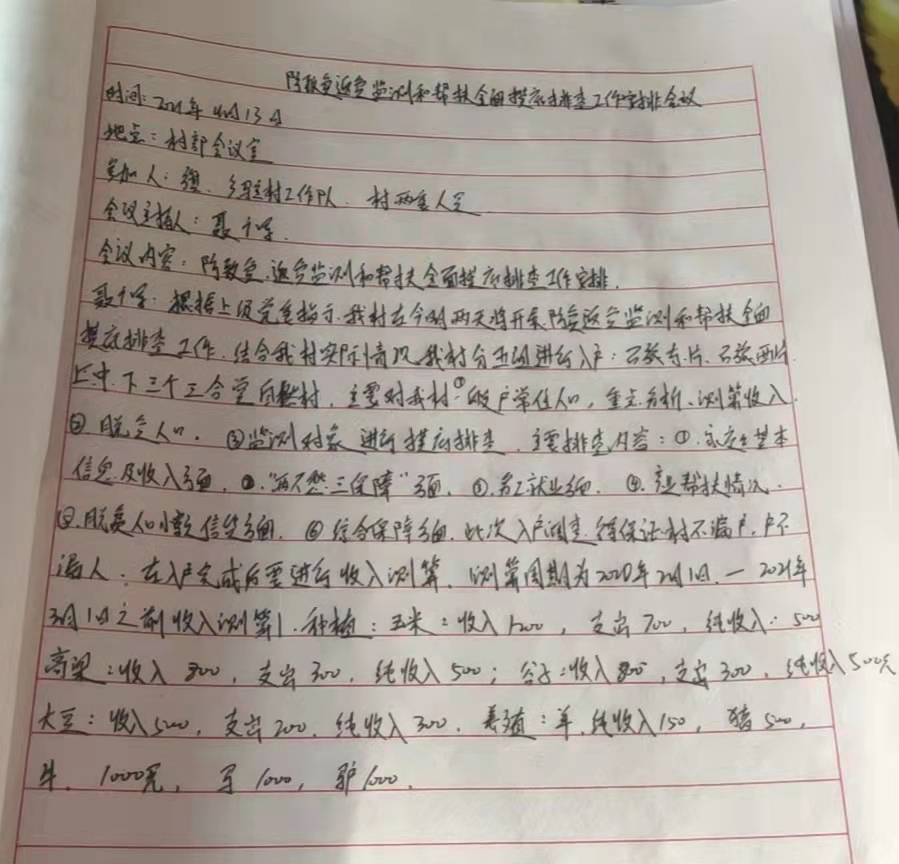 防致贫返贫监测和帮扶全面摸底排查工作安排会议
时间: 2021年4月13日
地点: 村部会议室
参加人: 驻村工作队、村两委人员
会议主持人: 聂
会议内容: 防致贫、返贫监测和帮扶全面摸底排查工作安排.
聂: 根据上级党委指示, 我村在今明两天将开展防贫返贫监测和帮扶全面
摸底排查工作, 结合我村实际情况, 我村分五组进行入户: 石 东片、石 西片
上、中、下三个三合堂自然村, 主要对我村① 户常住人口, 重点分析、测算收入
② 脱贫人口. ③监测对象 进行摸底排查, 主要排查内容: ①. 家庭基本
信息及收入方面, ②. “两不愁三保障”方面. ③. 务工就业方面. ④. 产业帮扶情况.
⑤. 脱贫人口小额信贷方面. ⑥ 综合保障方面. 此次入户调查, 得保证村不漏户, 户不
漏人, 在入户完成后要进行收入测算. 测算周期为2020年2月1日.—2021年
3月1日之前收入测算. 种植: 玉米: 收入1200, 支出700, 纯收入: 500
高粱: 收入 800, 支出 300, 纯收入 500; 谷子: 收入 800, 支出 300, 纯收入 500元
大豆: 收入 500, 支出 200, 纯收入 300. 养殖: 羊, 纯收入 150, 猪 500,
牛. 1000元, 马 1000, 驴 1000.